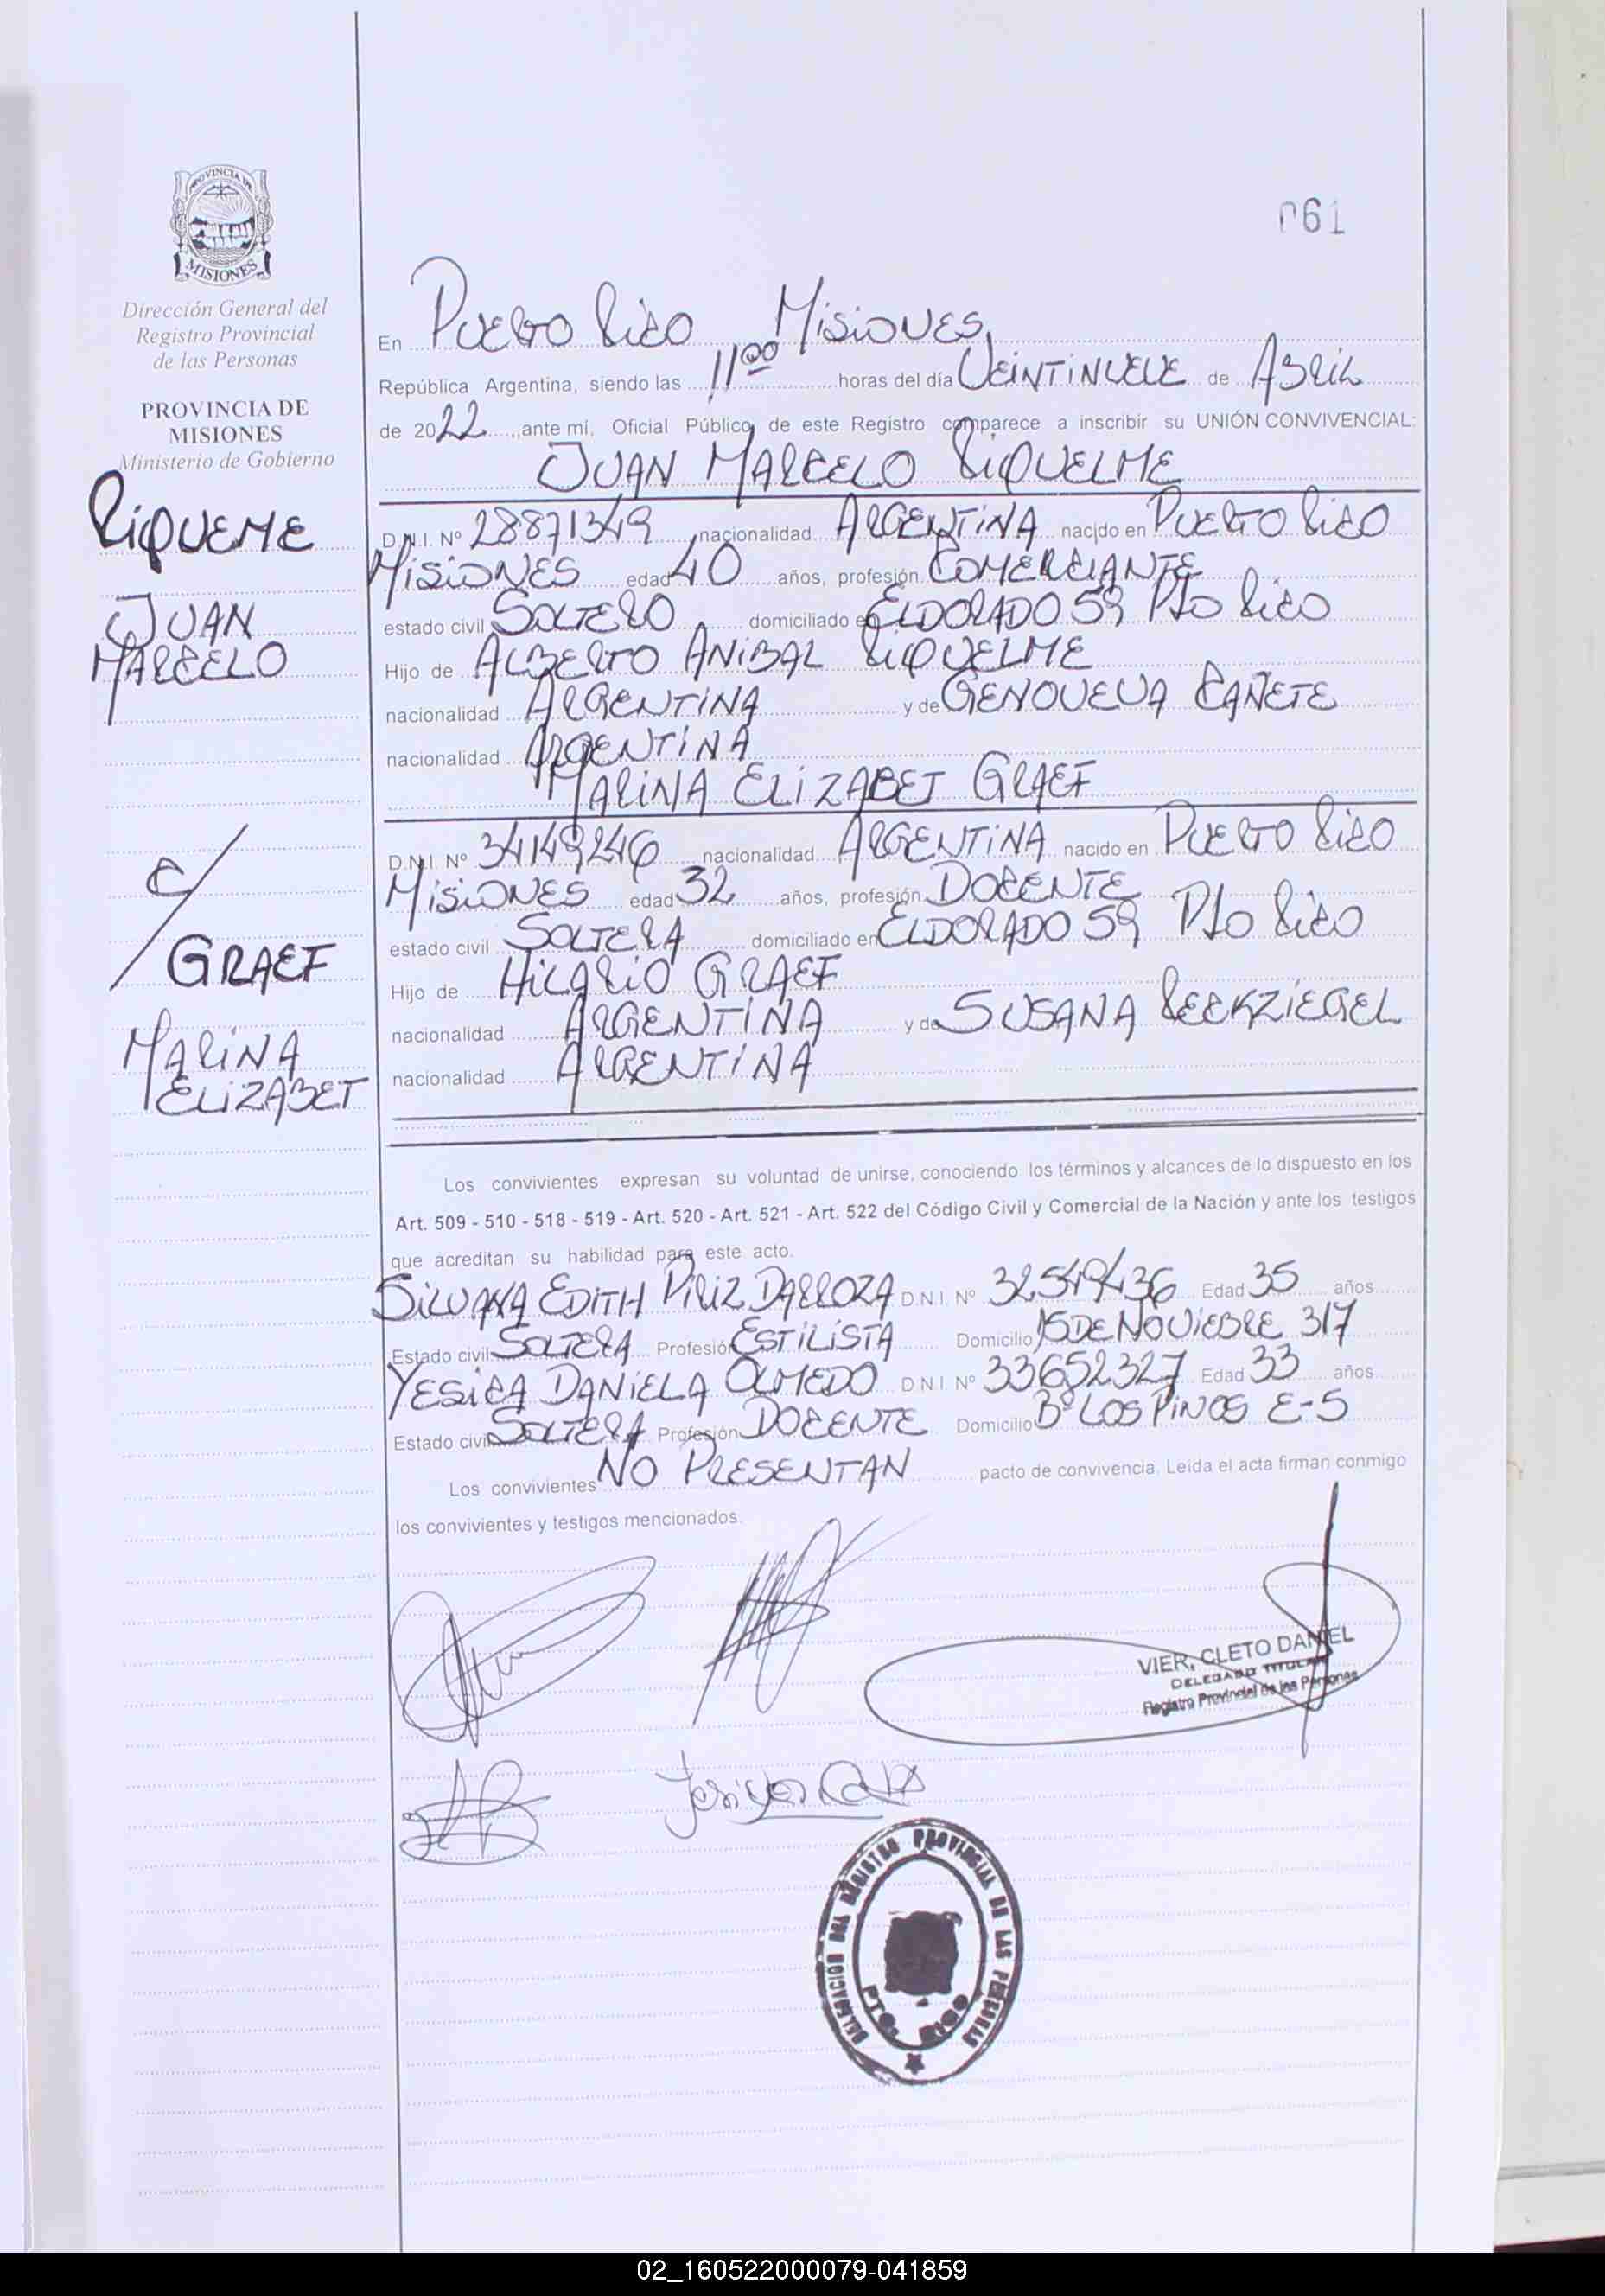 PROVINCIA DE
MISIONES
Dirección General del
Registro Provincial
de las Personas
PROVINCIA DE
MISIONES
Ministerio de Gobierno
RIQUEME
JUAN
MARCELO
C/
GRAEF
MARINA
ELIZABET
061
En PUERTO RICO MISIONES
República Argentina, siendo las 11 00 horas del día VEINTINUEVE de ABRIL
de 2022, ante mi, Oficial Público, de este Registro comparece a inscribir su UNIÓN CONVIVENCIAL:
JUAN MARCELO RIQUELME
D.N.I. Nº 28871349 nacionalidad ARGENTINA nacido en PUERTO RICO
MISIONES edad 40 años, profesión COMERCIANTE
estado civil SOLTERO domiciliado en ELDORADO 59 PTO RICO
Hijo de ALBERTO ANIBAL RIQUELME
nacionalidad ARGENTINA y de GENOVEVA CAÑETE
nacionalidad ARGENTINA
MARINA ELIZABET GRAEF
D.N.I. Nº 34149246 nacionalidad ARGENTINA nacido en PUERTO RICO
MISIONES edad 32 años, profesión DOCENTE
estado civil SOLTERA domiciliado en ELDORADO 59 PTO RICO
Hijo de HILARIO GRAEF
nacionalidad ARGENTINA y de SUSANA RECKZIEGEL
nacionalidad ARGENTINA
Los convivientes expresan su voluntad de unirse, conociendo los términos y alcances de lo dispuesto en los
Art. 509 - 510 - 518 - 519 - Art. 520 - Art. 521 - Art. 522 del Código Civil y Comercial de la Nación y ante los testigos
que acreditan su habilidad para este acto.
SILVANA EDITH PIRIZ DARROZA D.N.I. Nº 32549436 Edad 35 años
Estado civil SOLTERA Profesión ESTILISTA Domicilio 15 DE NOVIEBRE 317
YESICA DANIELA OLMEDO D.N.I. Nº 33652327 Edad 33 años
Estado civil SOLTERA Profesión DOCENTE Domicilio Bº LOS PINOS E-5
Los convivientes NO PRESENTAN pacto de convivencia. Leida el acta firman conmigo
los convivientes y testigos mencionados.
VIER, CLETO DANIEL
DELEGADO TITULAR
Registro Provincial de las Personas
DELEGACION DEL REGISTRO PROVINCIAL DE LAS PERSONAS
PTO. RICO
02_160522000079-041859